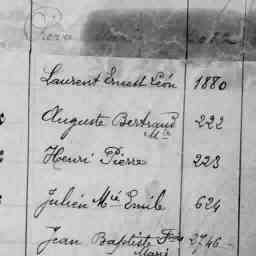 Laurent Ernest Léon 1880
Auguste Bertrand 222
Mie
Henri Pierre 223
Julien Mié Emile 624
Jean Baptiste Fois 2746
Marie